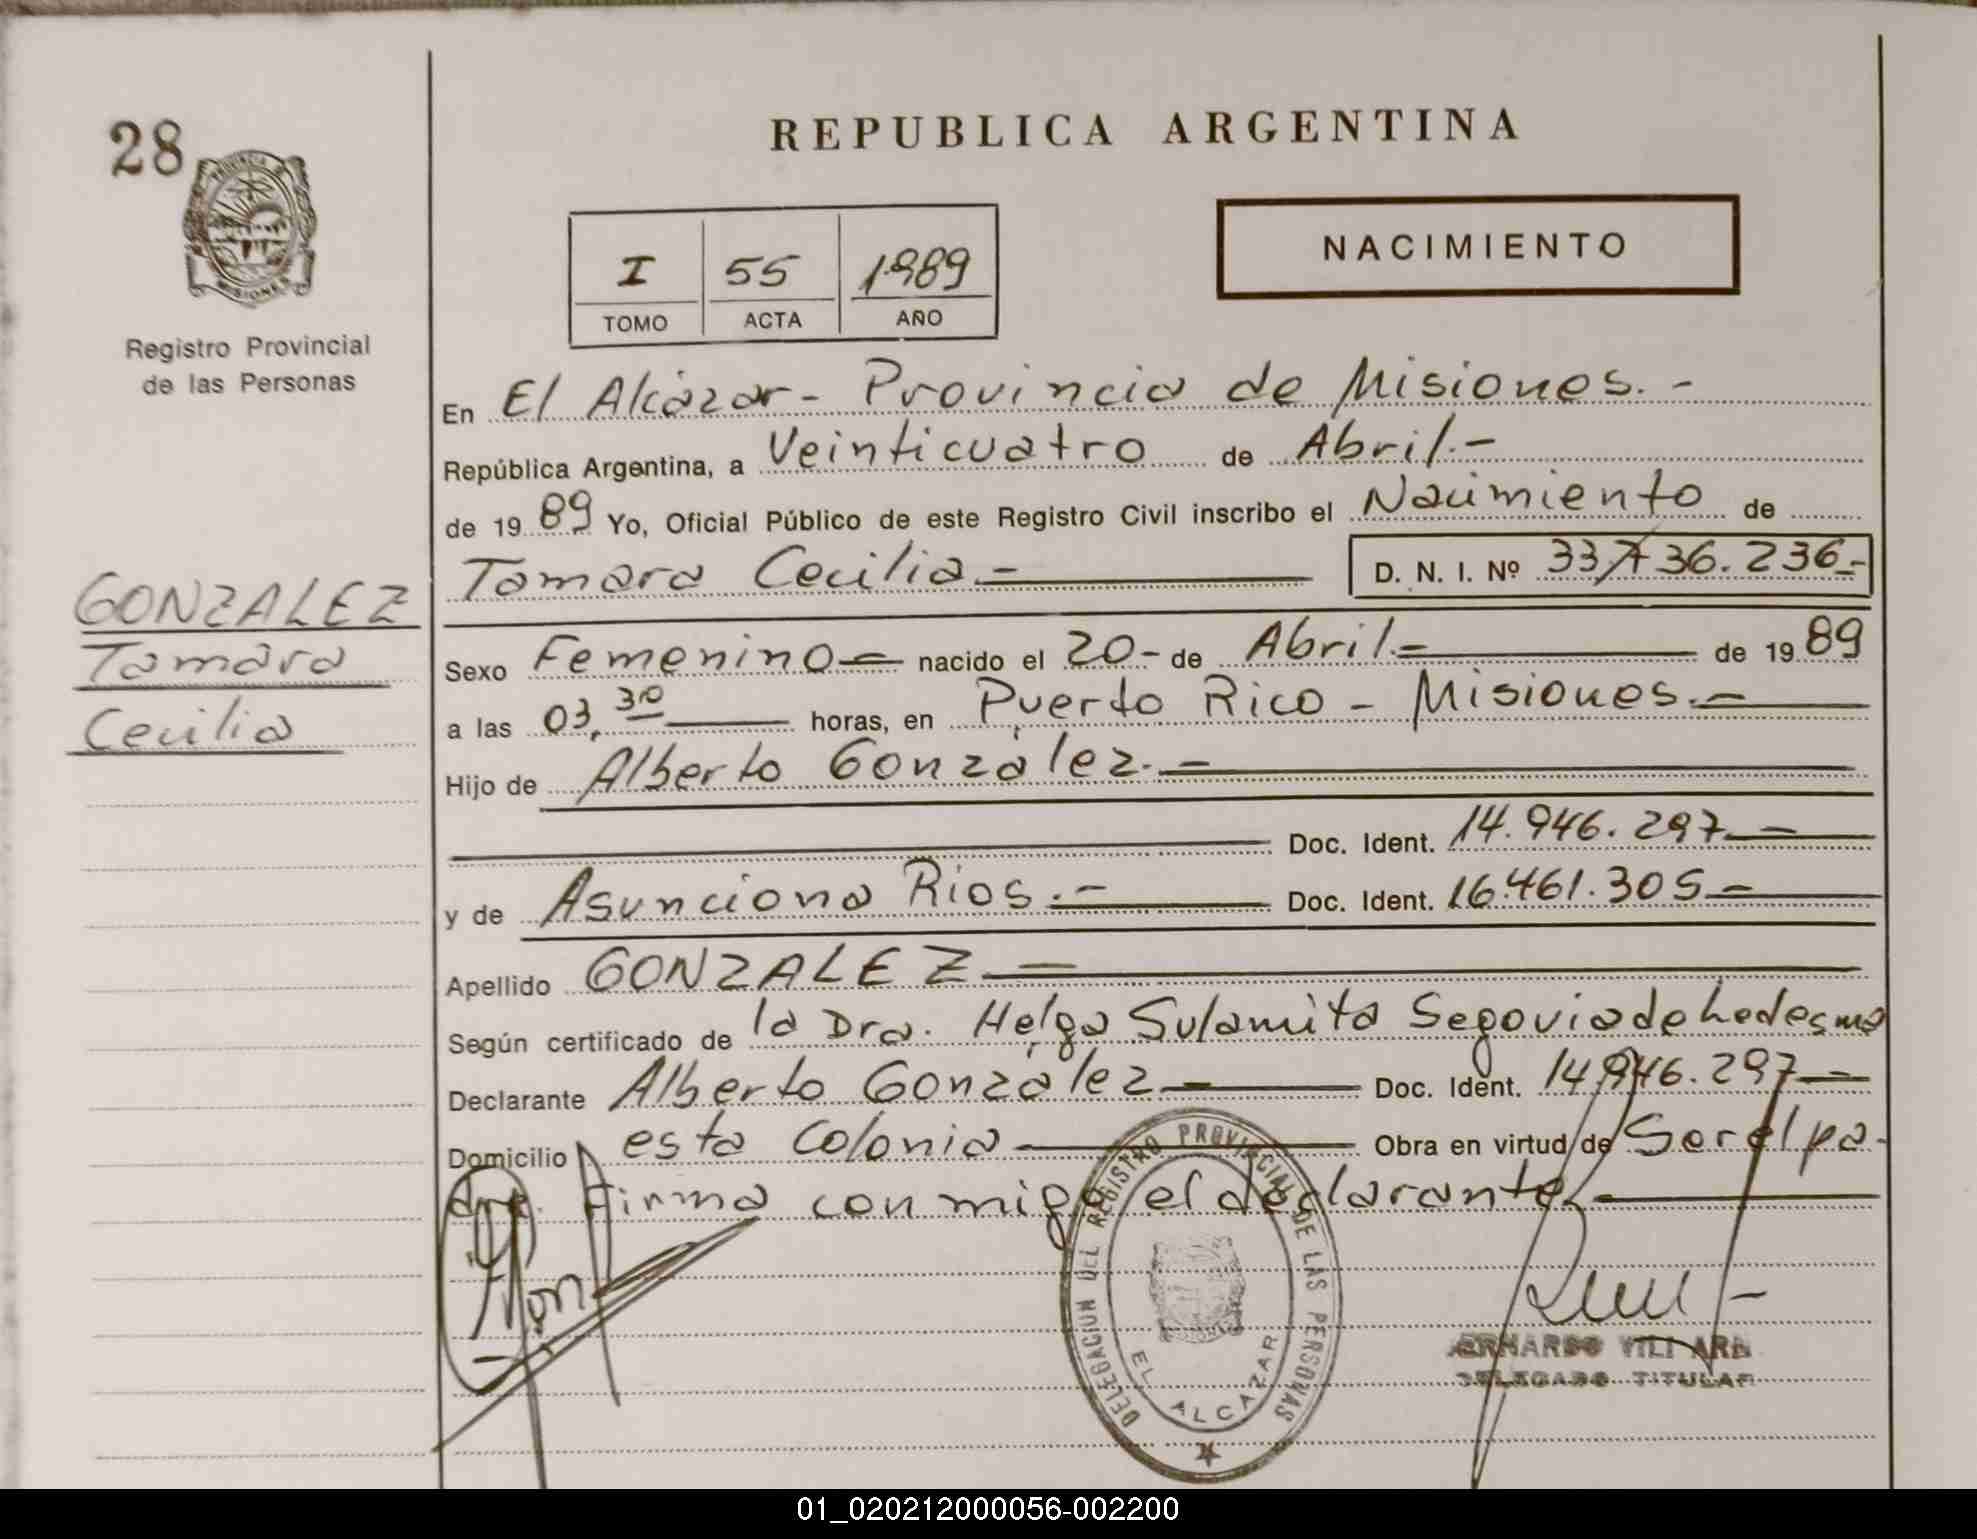 28
PROVINCIA DE
MISIONES
Registro Provincial
de las Personas
REPUBLICA ARGENTINA
I 55 1989
TOMO ACTA AÑO
NACIMIENTO
En El Alcázar - Provincia de Misiones.-
República Argentina, a Veinticuatro de Abril.-
de 1989 Yo, Oficial Público de este Registro Civil inscribo el Nacimiento de
Tamara Cecilia.- D. N. I. Nº 33.736.236-
GONZALEZ
Tamara
Cecilia
Sexo Femenino nacido el 20- de Abril.- de 1989
a las 03,30 horas, en Puerto Rico - Misiones.-
Hijo de Alberto González.-
Doc. Ident. 14.946.297
y de Asunciona Rios.- Doc. Ident. 16.461.305
Apellido GONZALEZ
Según certificado de la Dra. Helga Sulamita Segovia de Ledesma
Declarante Alberto González Doc. Ident. 14.946.297
Domicilio esta Colonia Obra en virtud de Ser el pa-
dre. Firma conmigo el declarante
DELEGACION DEL REGISTRO PROVINCIAL DE LAS PERSONAS
EL ALCAZAR
DELEGADO TITULAR
01_020212000056-002200